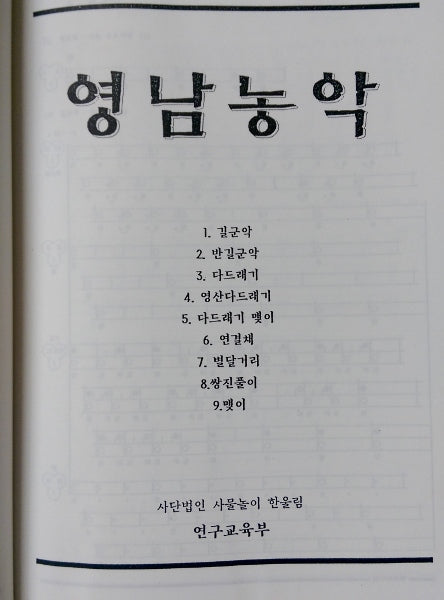 영남농악
1. 길군악
2. 반길군악
3. 다드래기
4. 영산다드래기
5. 다드래기 맺이
6. 연결채
7. 별달거리
8.쌍진풀이
9.맺이
사단법인 사물놀이 한울림
연구교육부